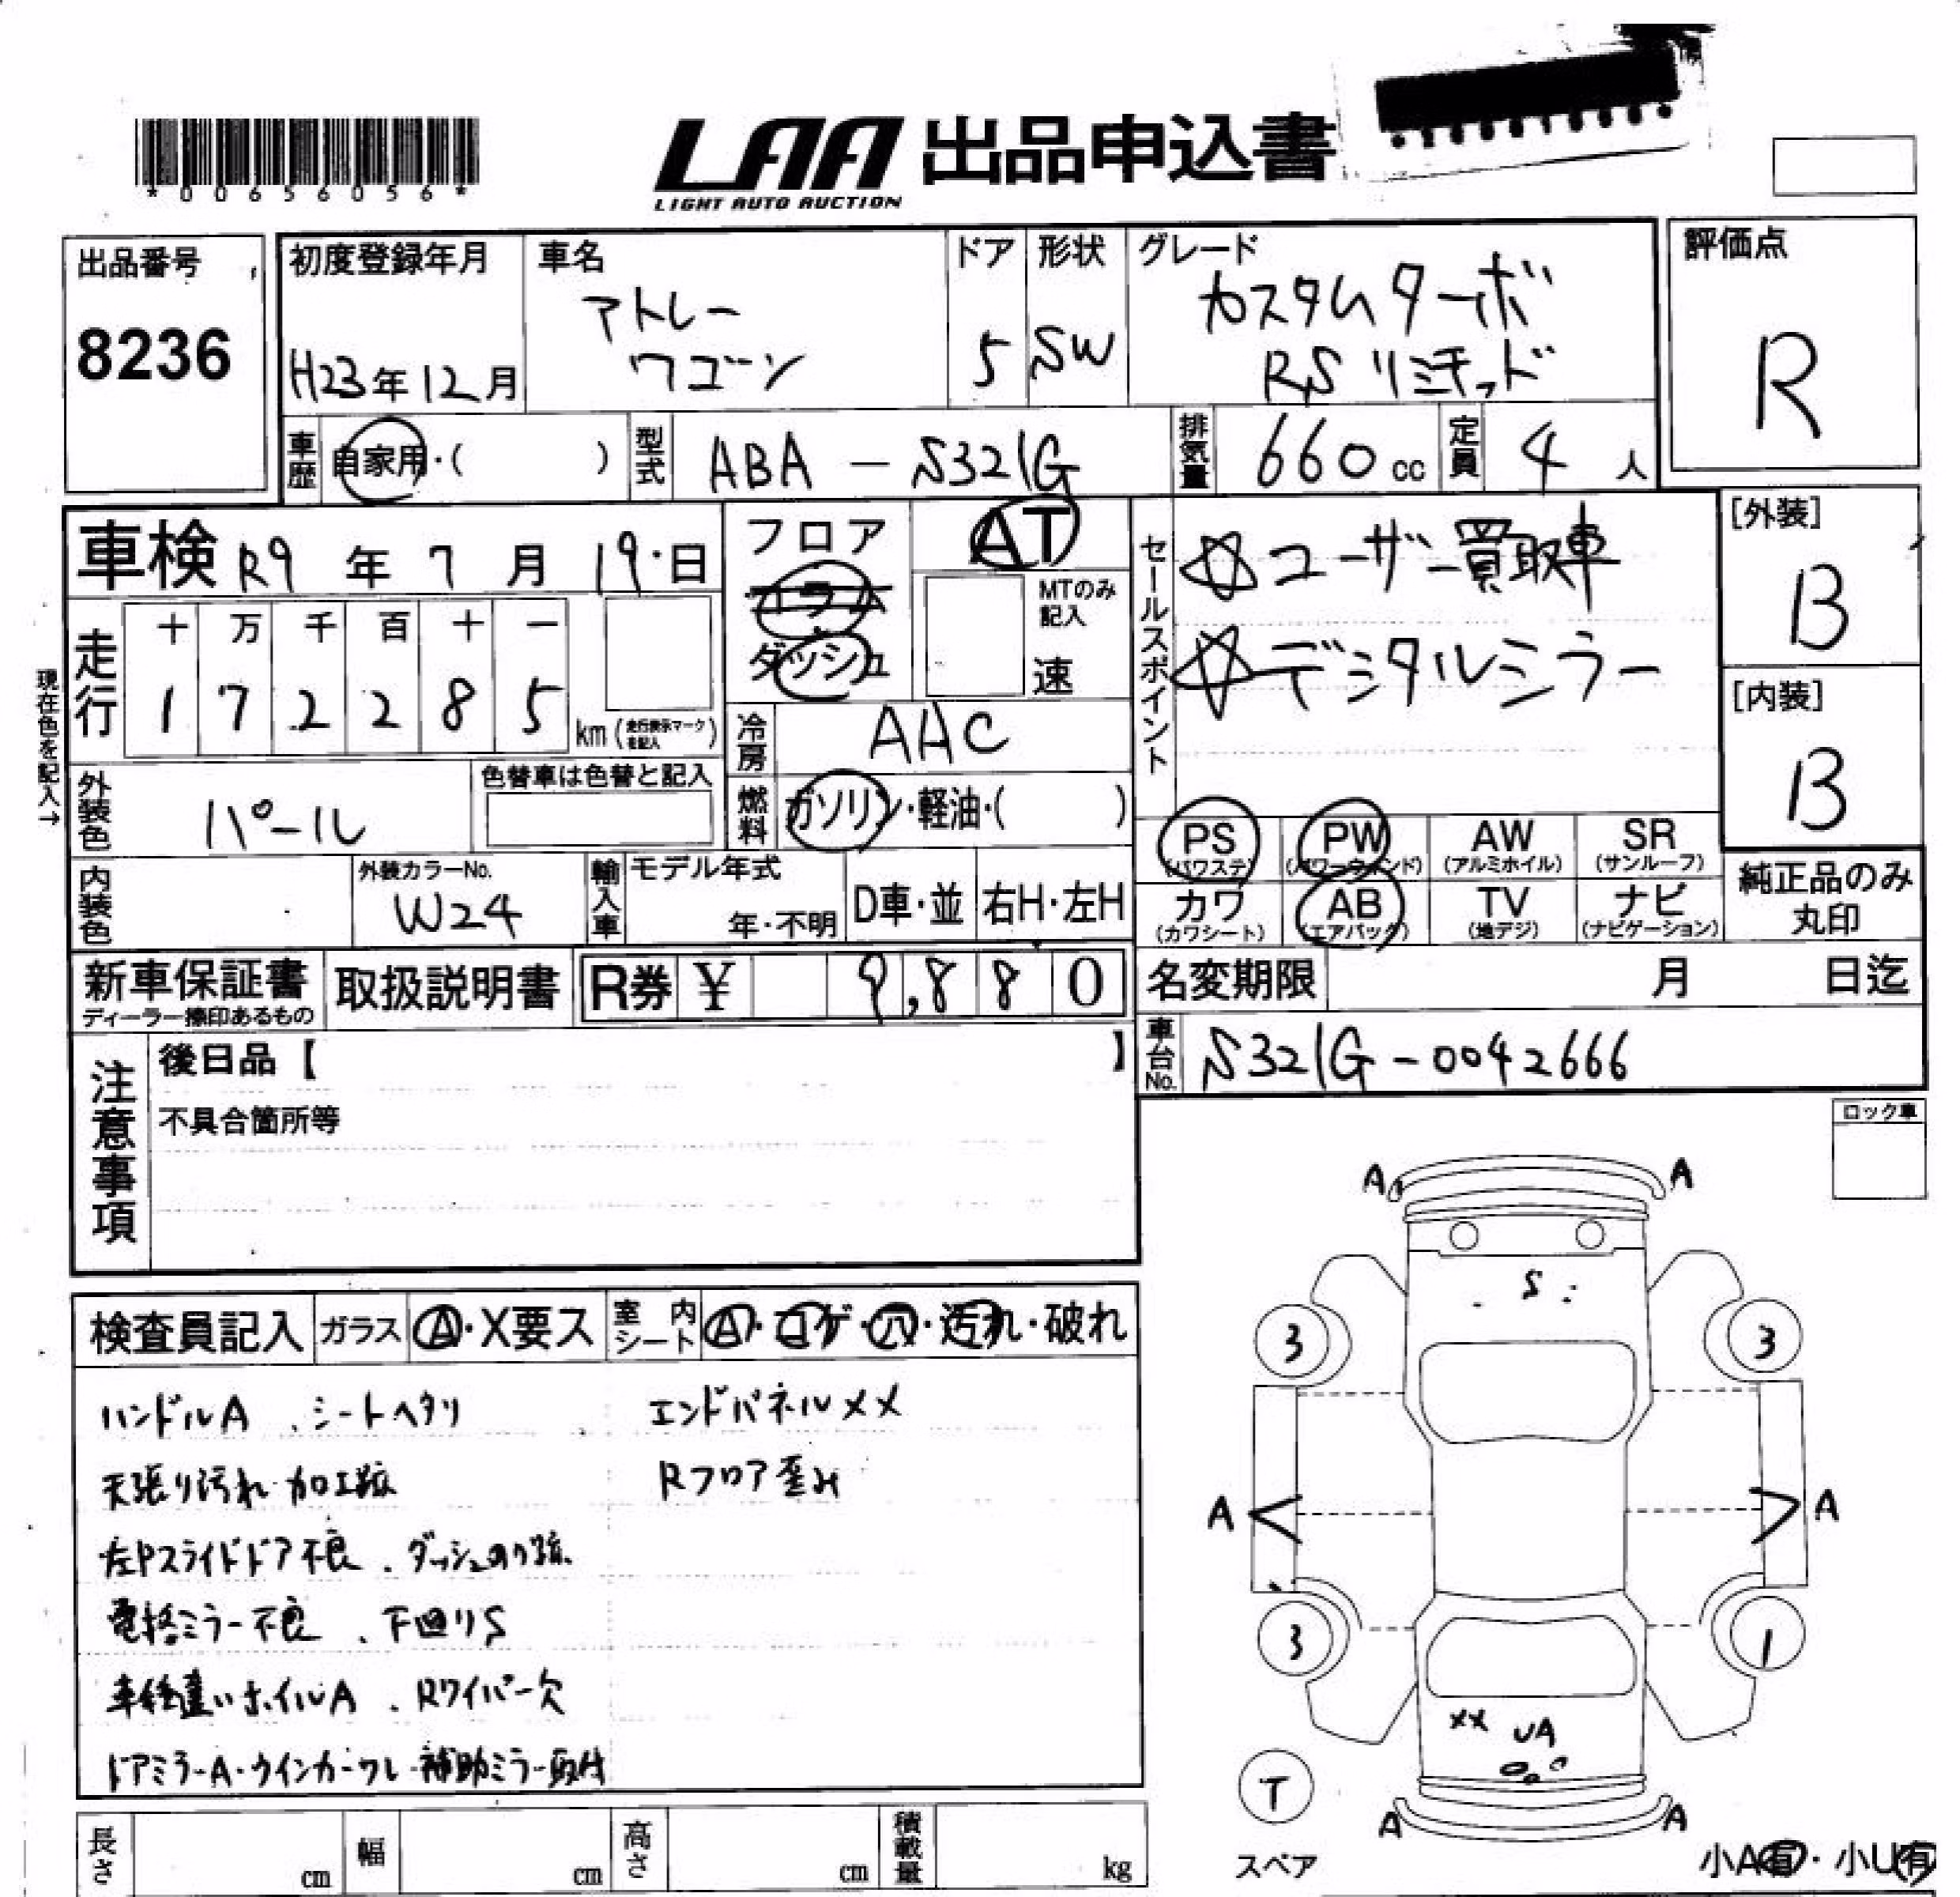 *00656056*
LAA 出品申込書
LIGHT AUTO AUCTION
出品番号
8236
初度登録年月
H23年12月
車名
アトレー
ワゴン
ドア
5
形状
SW
グレード
カスタムターボ
RSリミテッド
評価点
R
車歴 自家用・( )
型式 ABA-S321G
排気量 660cc
定員 4人
車検 R9年7月19日
フロア
コラム
ダッシュ
AT
MTのみ
記入
速
セールスポイント
☆ユーザー買取車
☆デジタルミラー
[外装]
B
[内装]
B
現在色を記入→
走行
十 万 千 百 十 一
1 7 2 2 8 5
km(走行表示マークを記入)
冷房 AAC
外装色 パール
色替車は色替と記入
燃料 ガソリン・軽油・( )
PS
(パワステ)
PW
(パワーウィンド)
AW
(アルミホイル)
SR
(サンルーフ)
内装色
外装カラーNo.
W24
輸入車
モデル年式
年・不明
D車・並
右H・左H
カワ
(カワシート)
AB
(エアバック)
TV
(地デジ)
ナビ
(ナビゲーション)
純正品のみ
丸印
新車保証書
ディーラー捺印あるもの
取扱説明書
R券 ¥ 9,880
名変期限 月 日迄
車台No. S321G-0042666
注意事項
後日品【 】
不具合箇所等
ロック車
検査員記入
ガラス A・X要ス
室内シート A・コゲ・穴・汚れ・破れ
ハンドルA、シートヘタリ
エンドパネルXX
天張り汚れ・加工跡
Rフロア歪み
左Pスライドドア不良、ダッシュのり跡
電格ミラー不良、下廻りS
車種違いホイルA、Rワイパー欠
ドアミラーA・ウインカーワレ・補助ミラー取付
A A
S
3 3
A A
3 1
XX UA
T
A A
スペア
小A有・小U有
長さ cm
幅 cm
高さ cm
積載量 kg